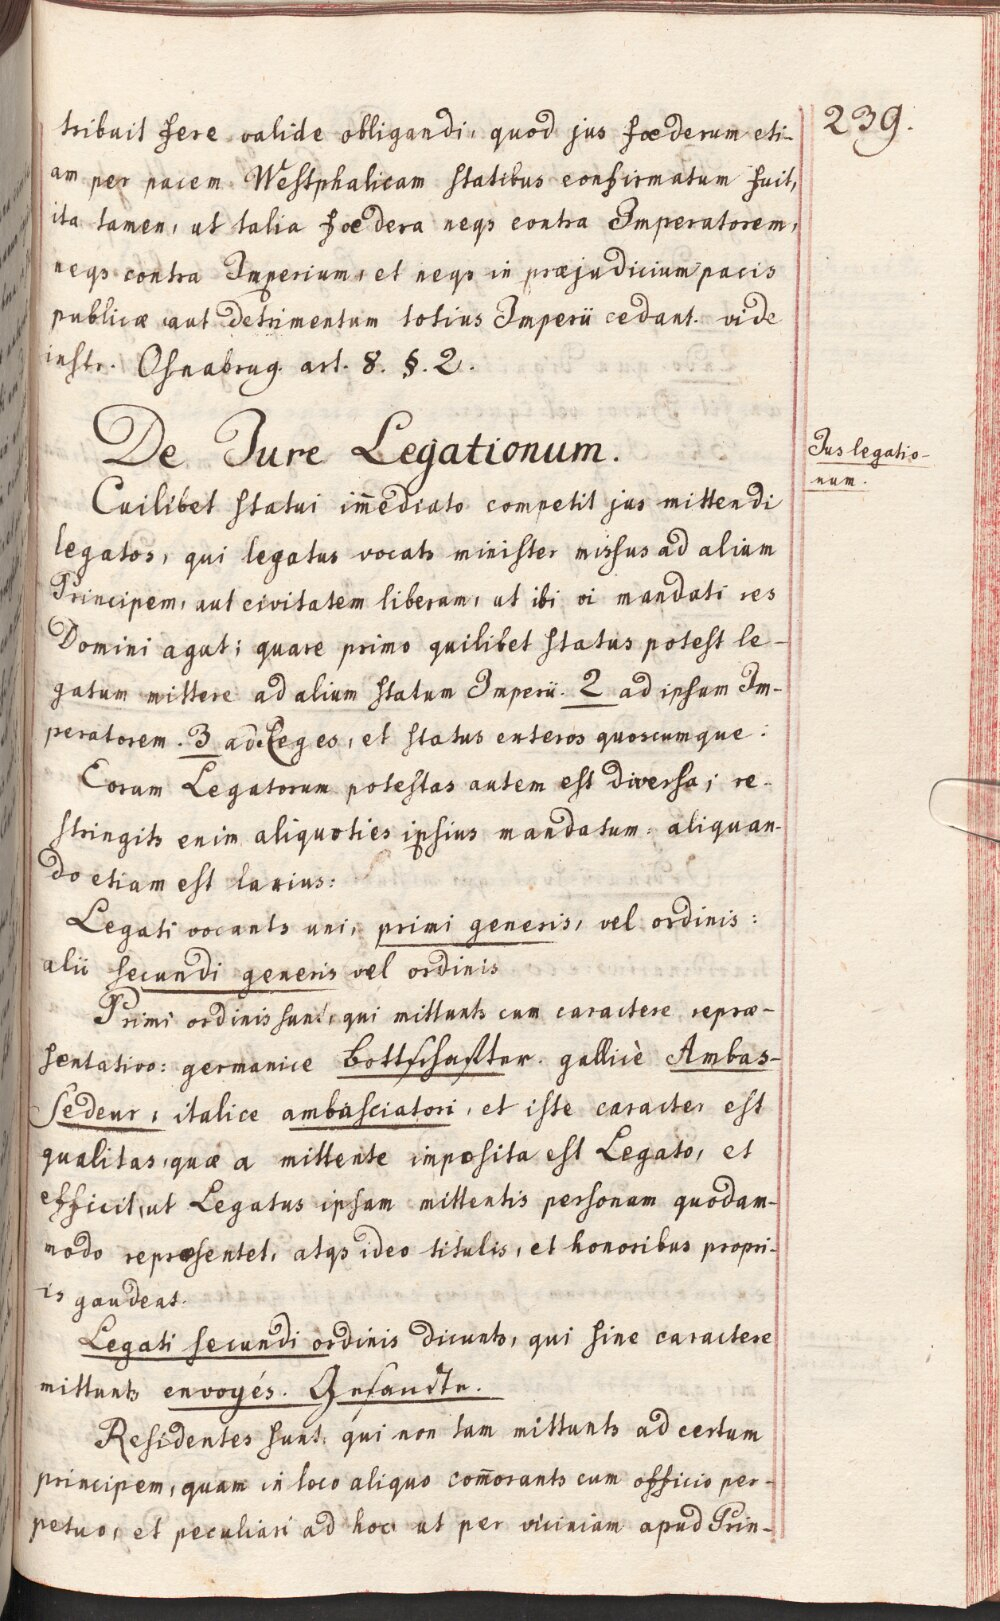 239.
tribuit sere valide obligandi, quod jus foederum eti-
am per pacem Westphalicam statibus confirmatum fuit,
ita tamen, ut talia foedera neqs contra Imperatorem,
neqs contra Imperium, et neqs in præjudicium pacis
publicæ aut detrimentum totius Imperii cedant. vide
instr. Osnabrug. art. 8. §. 2.
De Jure Legationum.
Jus legatio-
num.
Cuilibet statui im̅ediato competit jus mittendi
legatos, qui legatus vocats minister missus ad alium
Principem, aut civitatem liberam, ut ibi vi mandati res
Domini agat; quare primo quilibet status potest le-
gatum mittere ad alium statum Imperii. 2 ad ipsum Im-
peratorem. 3 ad Reges, et status exteros quoscumque:
Eorum Legatorum potestas autem est diversa; re-
stringits enim aliquoties ipsius mandatum: aliquan-
do etiam est laxius:
Legati vocants uni, primi generis, vel ordinis:
alii secundi generis vel ordinis
Primi ordinis sunt, qui mittunts cum caractere repræ-
sentativo: germanice Bottschaffter. gallicè Ambas-
sedeur, italice ambasciatori, et iste caracter est
qualitas, quæ a mittente imposita est Legato, et
efficit, ut Legatus ipsam mittentis personam quodam-
modo repræsentet, atqs ideo titulis, et honoribus propri-
is gaudeat.
Legati secundi ordinis dicunts, qui sine caractere
mittunts envoyés. Gesandte.
Residentes sunt, qui non tam mittunts ad certum
principem, quam in loco aliquo com̅orants cum officio per-
petuo, et peculiari ad hoc ut per viciniam apud Prin-